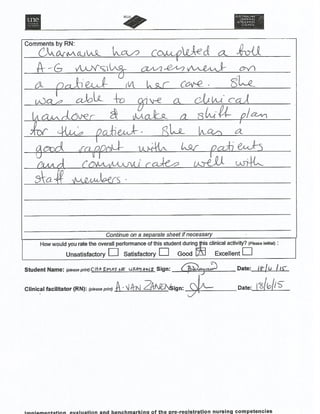 une
Comments by RN:
Charmaine has completed a full
A-G nursing assessment on
a patient in her care. She
was able to give a clinical
handover & make a shift plan
for this patient. She has a
good rapport with her patients
and communicates well with
staff members.
Continue on a separate sheet if necessary
How would you rate the overall performance of this student during this clinical activity? (Please initial) :
Unsatisfactory Satisfactory Good Excellent
Student Name: (please print) CHARMAINE Sign: Date: 18/6/15
Clinical facilitator (RN): (please print) A. VAN ZANEN Sign: Date: 18/6/15
Implementation, evaluation and benchmarking of the pre-registration nursing competencies